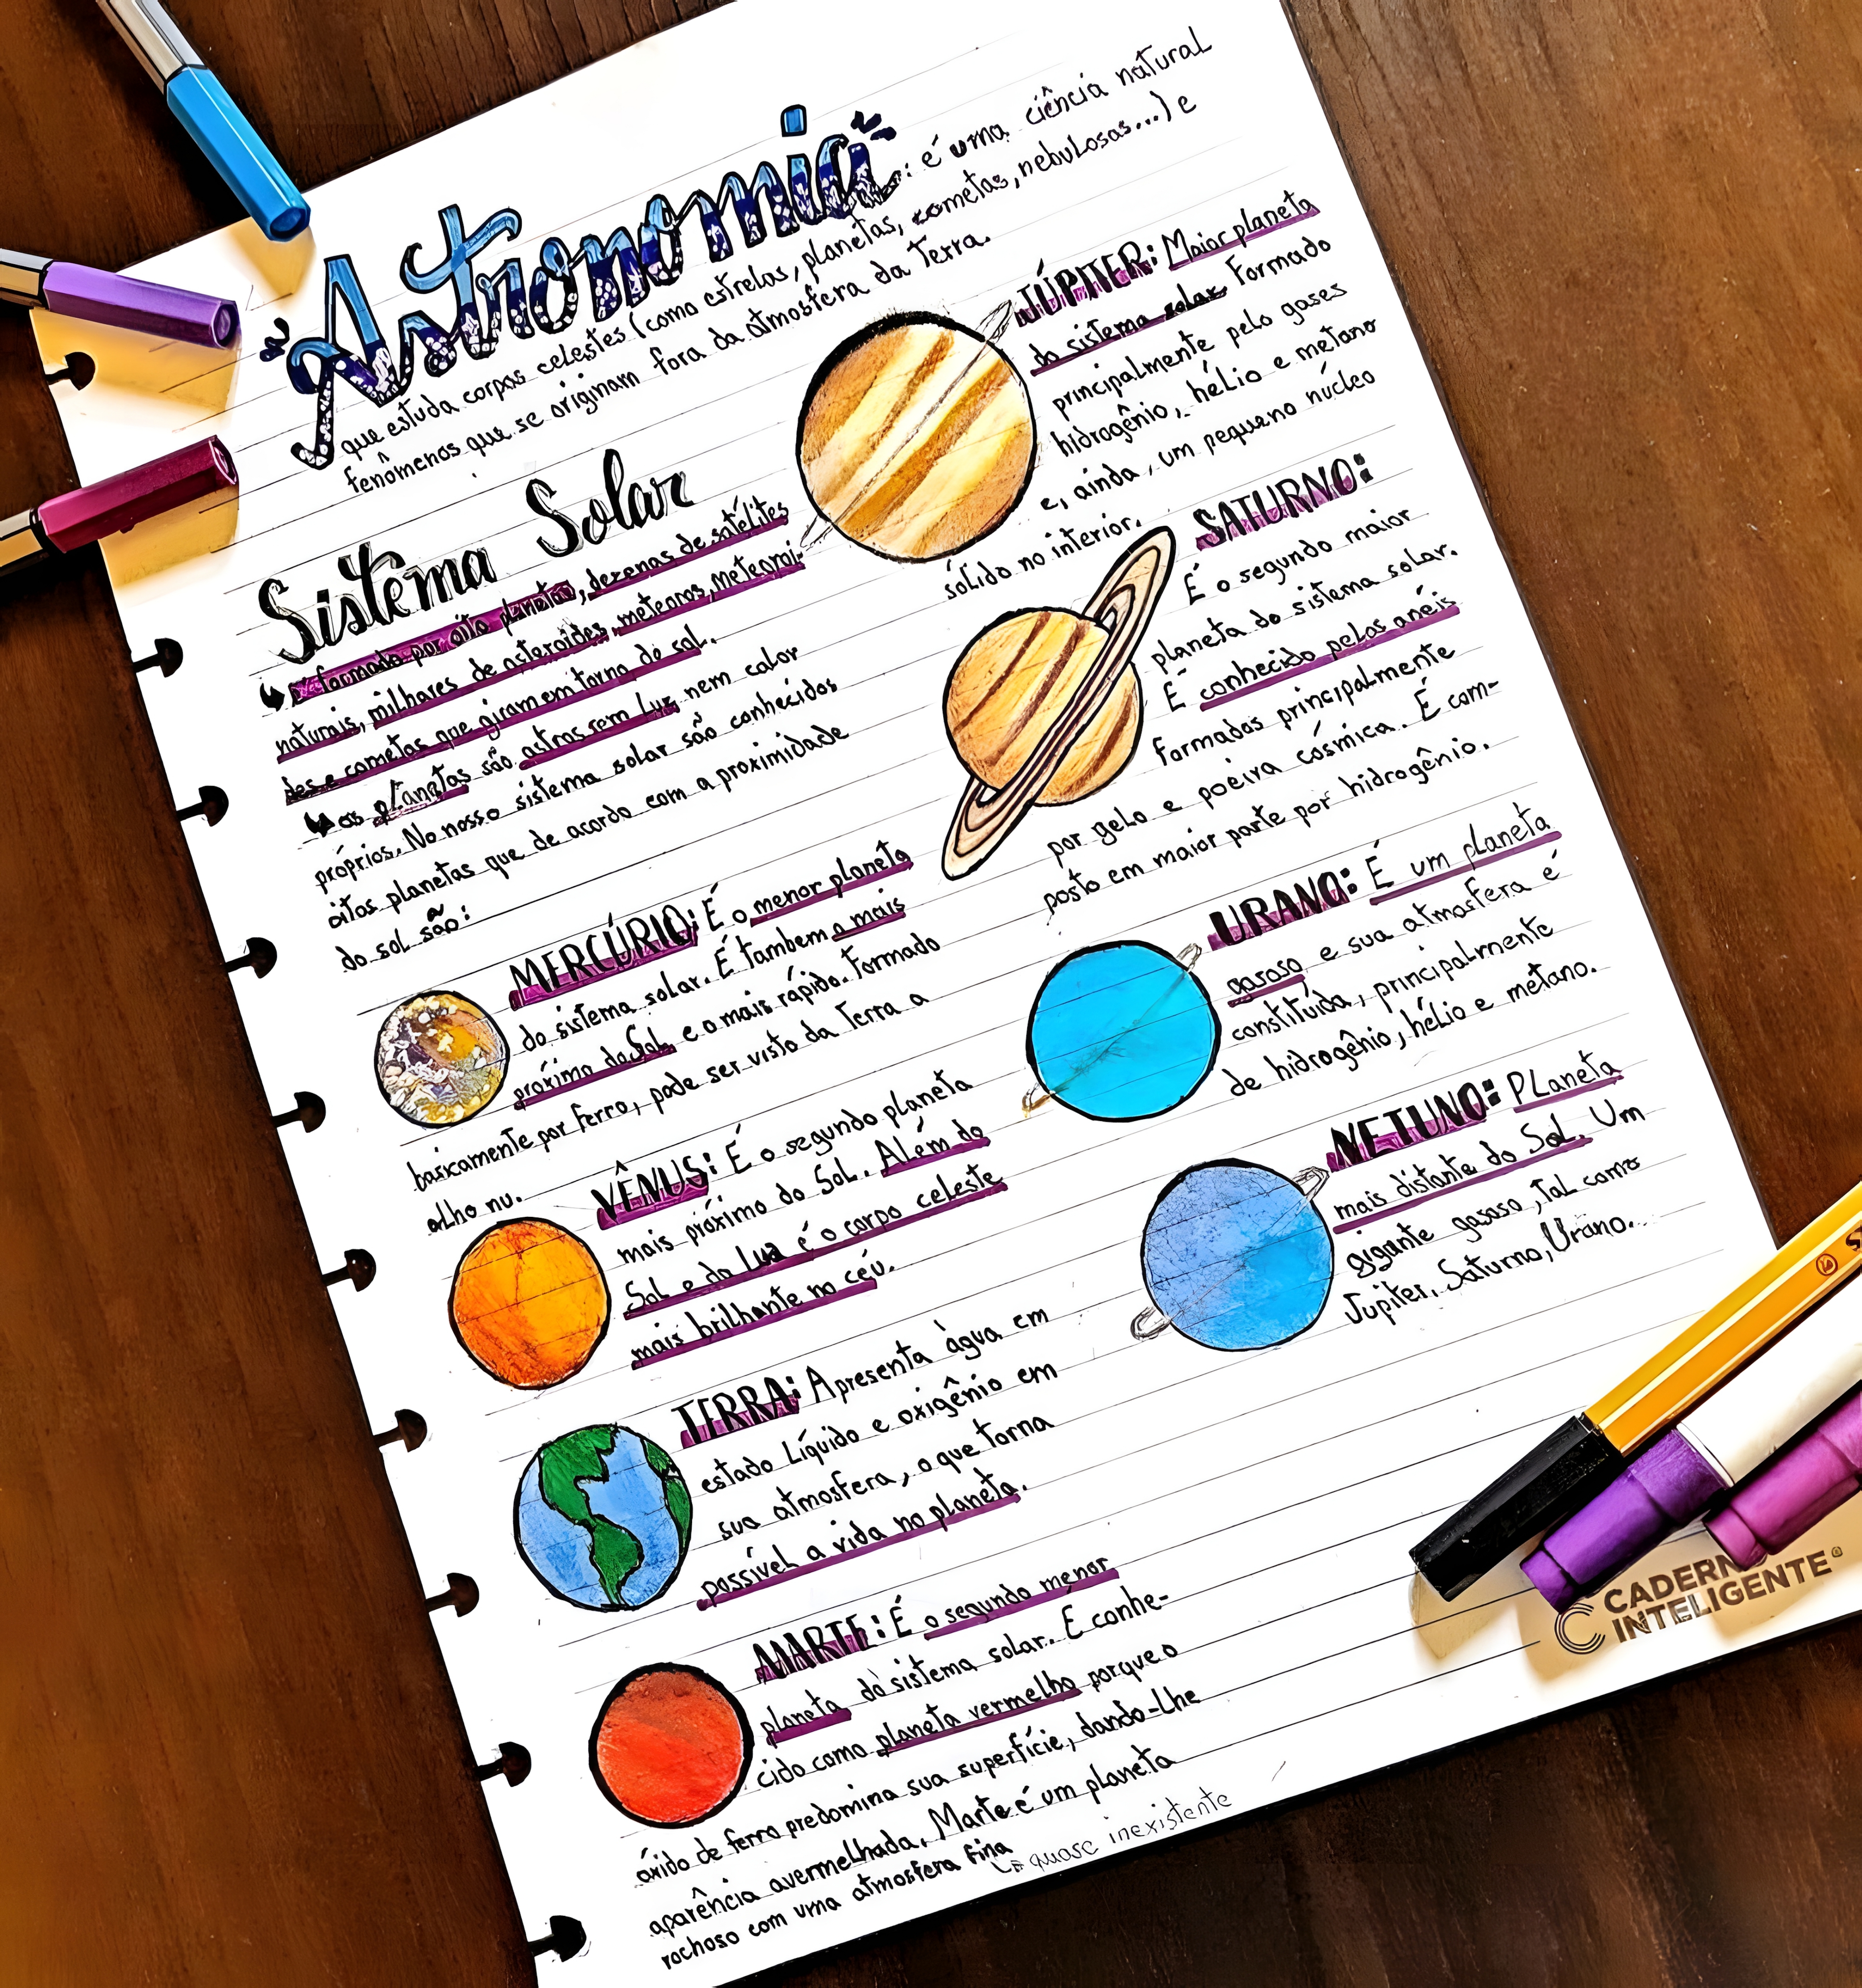 Astronomia: é uma ciência natural
que estuda corpos celestes (como estrelas, planetas, cometas, nebulosas...) e
fenômenos que se originam fora da atmosfera da Terra.
Sistema Solar
é formado por oito planetas, dezenas de satélites
naturais, milhares de asteroides, meteoros, meteoroi-
des e cometas que giram em torno do sol.
os planetas são astros sem luz nem calor
próprios. No nosso sistema solar são conhecidos
oitos planetas que de acordo com a proximidade
do sol são:
MERCÚRIO: É o menor planeta
do sistema solar. É tambem o mais
próximo do Sol e o mais rápido. Formado
basicamente por ferro, pode ser visto da Terra a
olho nu.
VÊNUS: É o segundo planeta
mais próximo do Sol. Além do
Sol e da Lua é o corpo celeste
mais brilhante no céu.
TERRA: Apresenta àgua em
estado líquido e oxigênio em
sua atmosfera, o que torna
possível a vida no planeta.
MARTE: É o segundo menor
planeta do sistema solar. É conhe-
cido como planeta vermelho porque o
óxido de ferro predomina sua superfície, dando-lhe
aparência avermelhada. Marte é um planeta
rochoso com uma atmosfera fina
quase inexistente
JÚPITER: Maior planeta
do sistema solar. Formado
principalmente pelo gases
hidrogênio, hélio e metano
e, ainda, um pequeno núcleo
sólido no interior.
SATURNO:
É o segundo maior
planeta do sistema solar.
É conhecido pelos anéis
formados principalmente
por gelo e poeira cósmica. É com-
posto em maior parte por hidrogênio.
URANO: É um planeta
gasoso, e sua atmosfera é
constituída, principalmente
de hidrogênio, hélio e metano.
NETUNO: Planeta
mais distante do Sol. Um
gigante gasoso, tal como
Jupiter, Saturno, Urano...
CADERNO
INTELIGENTE®